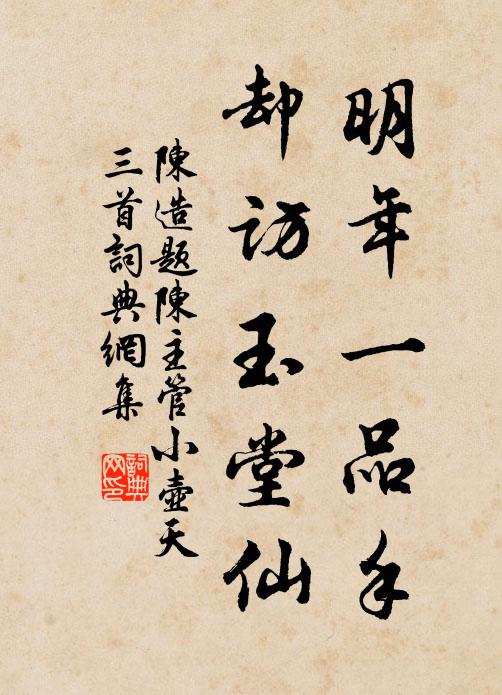 明年一品手
却訪玉堂仙
陳造題陳主管小壺天
三首詞典網集
詞典
网印